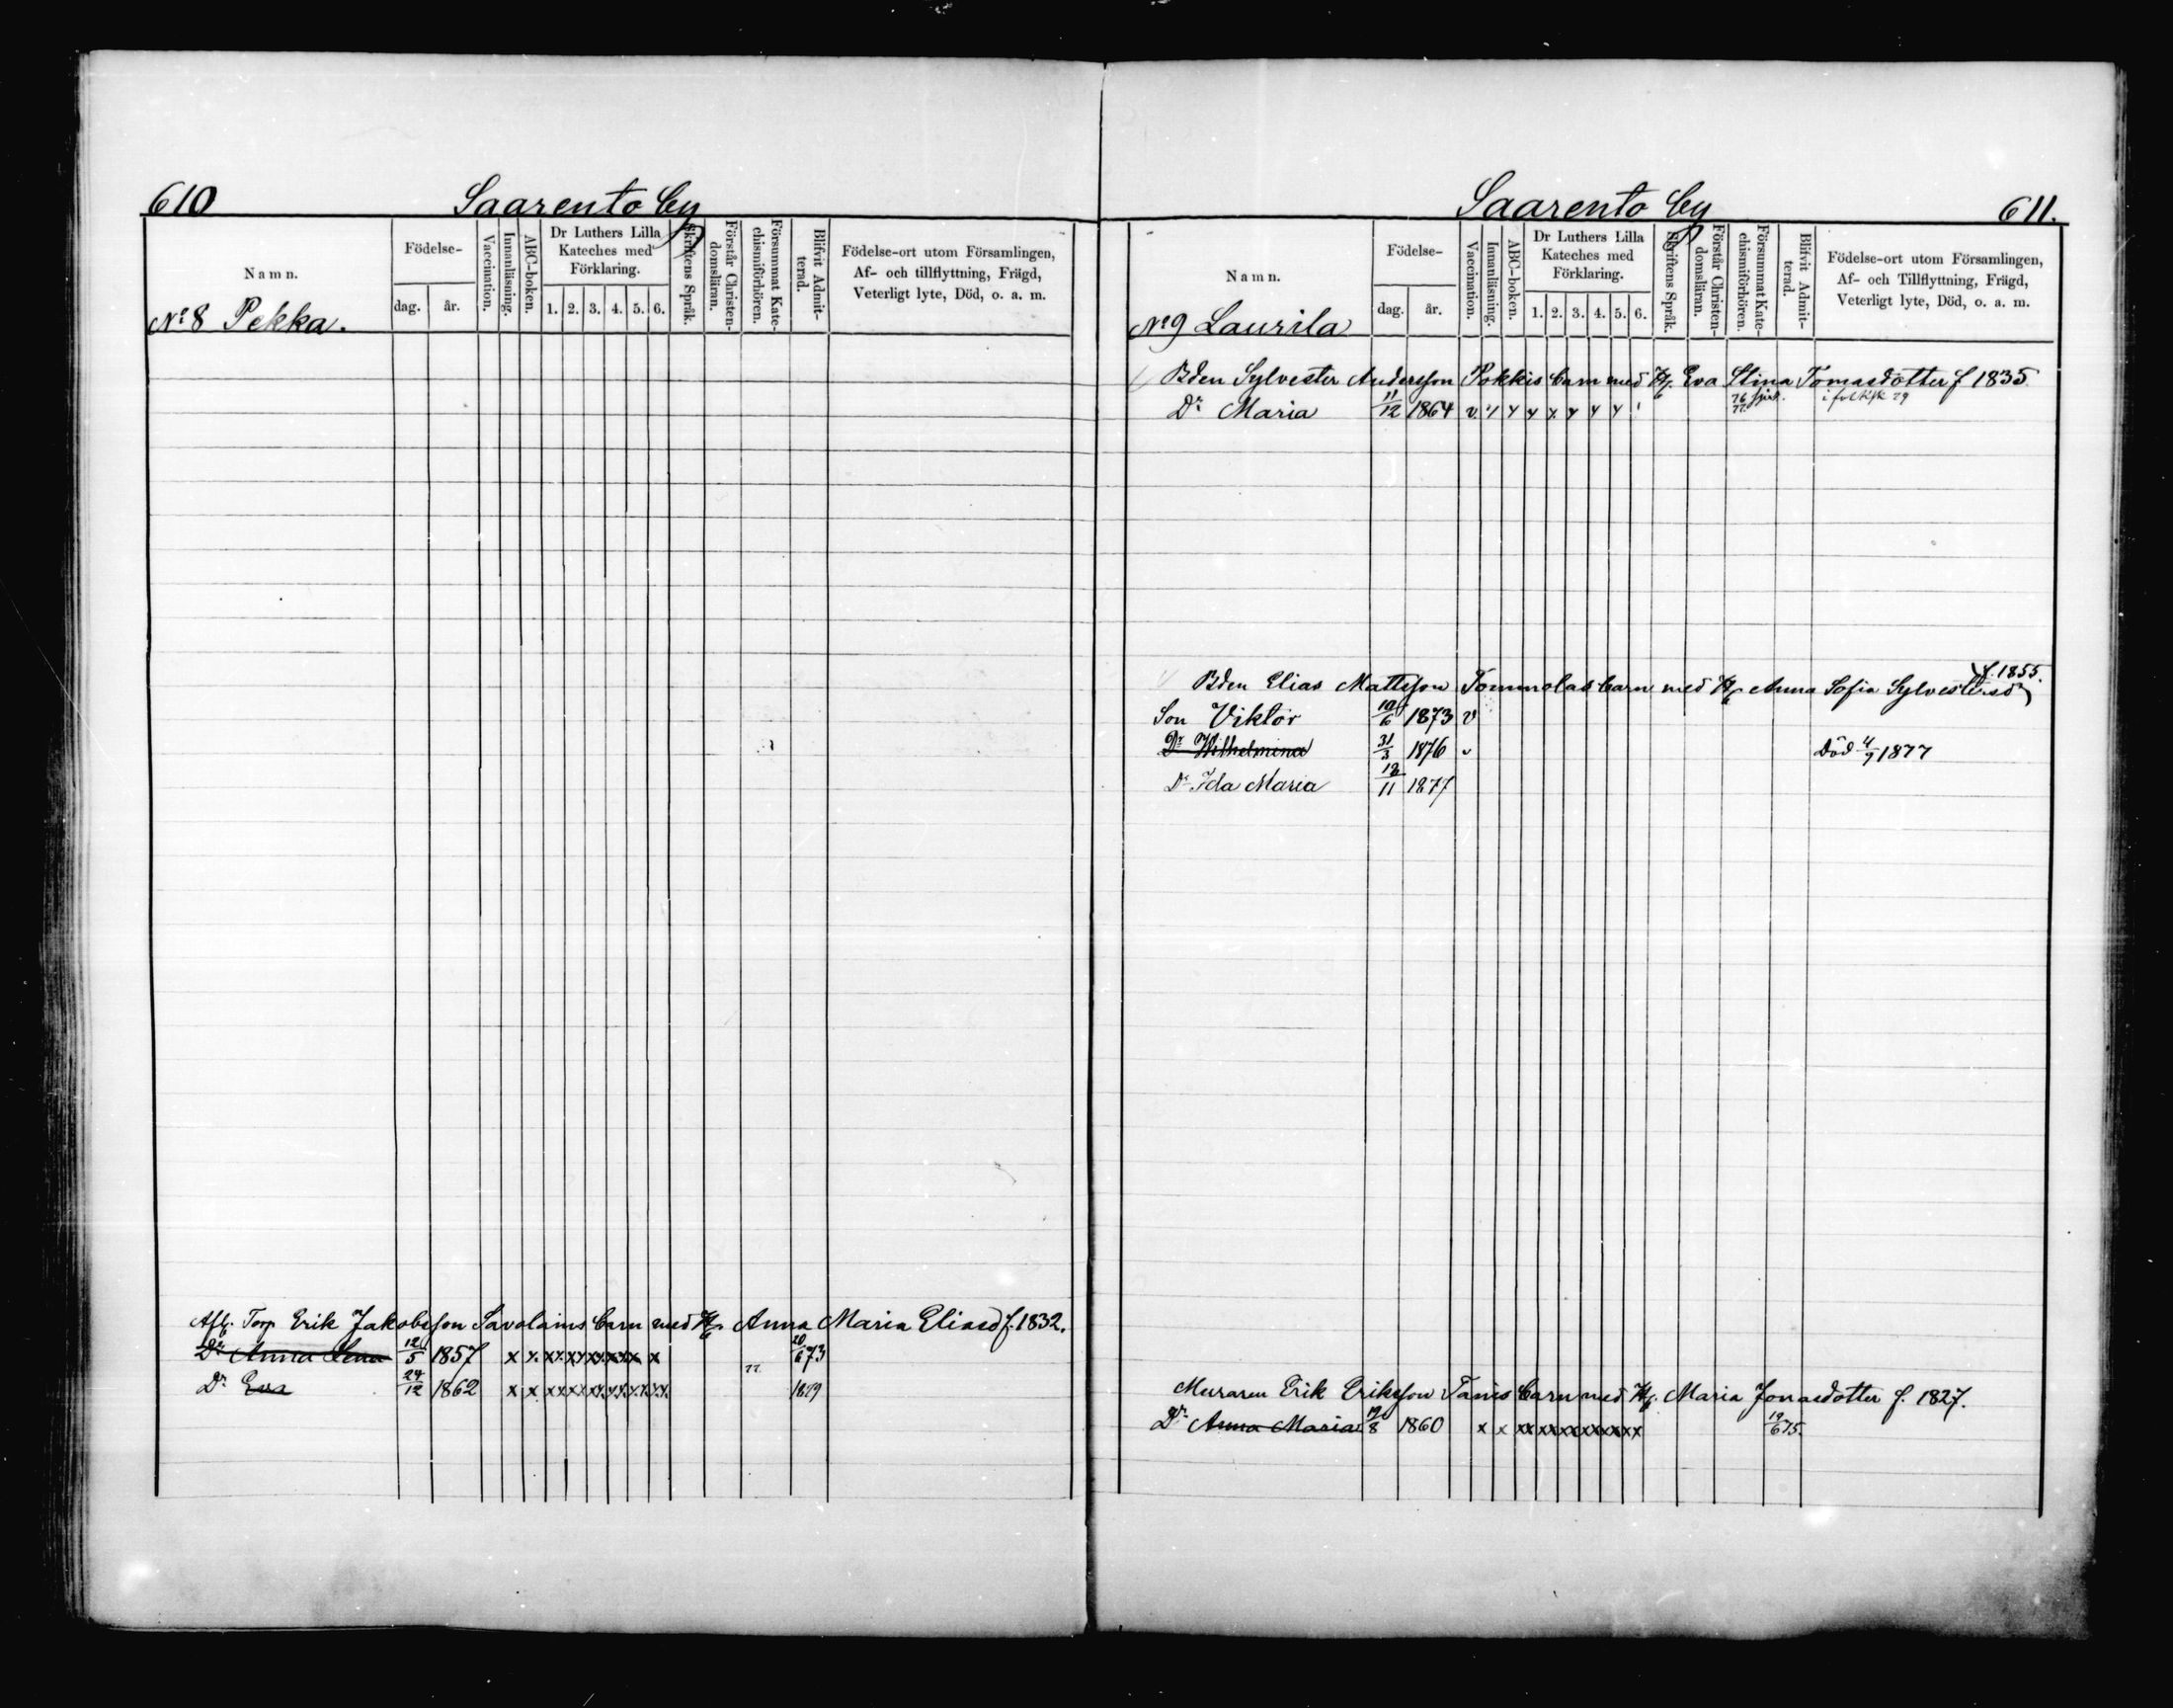 610 Saarento by
Namn.
Födelse-
dag. år.
Vaccination.
Innanläsning.
ABC-boken.
Dr Luthers Lilla
Kateches med
Förklaring.
1. 2. 3. 4. 5. 6.
Skriftens Språk.
Förstår Christen-
domsläran.
Försummat Kate-
chismiförhören.
Blifvit Admit-
terad.
Födelse-ort utom Församlingen,
Af- och tillflyttning, Frägd,
Veterligt lyte, Död, o. a. m.
No 8 Pekka.
Afl. Torp Erik Jakobsson Savolains barn med H. Anna Maria Eliasd f. 1832.
Dr Anna Lena 12/5 1857 x x xx xx xx xx x 20/6 73
Dr Eva 24/12 1862 x x xx xx xx xx xx xx 77 1879
Saarento by 611.
Namn.
Födelse-
dag. år.
Vaccination.
Innanläsning.
ABC-boken.
Dr Luthers Lilla
Kateches med
Förklaring.
1. 2. 3. 4. 5. 6.
Skriftens Språk.
Förstår Christen-
domsläran.
Försummat Kate-
chismiförhören.
Blifvit Admit-
terad.
Födelse-ort utom Församlingen,
Af- och Tillflyttning, Frägd,
Veterligt lyte, Död, o. a. m.
No 9 Laurila
Bden Sylvester Andersson Pokkis barn med H. Eva Stina Tomasdotter f 1835
Dr Maria 11/12 1864 v 76 77 79
Bden Elias Mattsson Tommolas barn med H. Anna Sofia Sylvestersd f. 1855.
Son Viktor 10/6 1873 v
Dr Wilhelmina 31/3 1876 v Död 4/9 1877
Dr Ida Maria 18/11 1877
Muraren Erik Eriksson Tanis barn med H. Maria Jonasdotter f. 1827.
Dr Anna Maria 19/8 1860 x x xx xx xx xx xx xx 19/6 75.